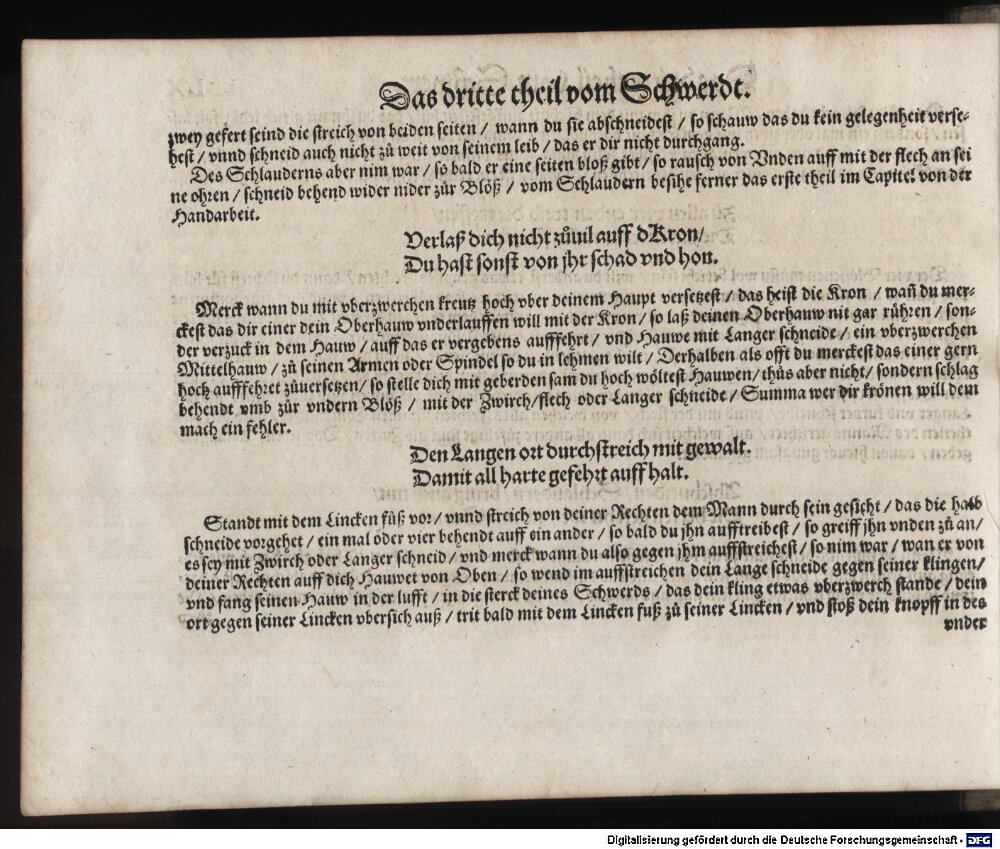 Das dritte theil vom Schwerdt.
zwey gefert seind die streich von beiden seiten / wann du sie abschneidest / so schauw das du kein gelegenheit verse-
hest / vnnd schneid auch nicht zů weit von seinem leib / das er dir nicht durchgang.
Des Schlauderns aber nim war / so bald er eine seiten bloß gibt / so rausch von Vnden auff mit der flech an sei
ne ohren / schneid behend wider nider zůr Blöß / vom Schlaudern besihe ferner das erste theil im Capitel von der
Handarbeit.
Verlaß dich nicht zůuil auff dKron/
Du hast sonst von jhr schad vnd hon.
Merck wann du mit vberzwerchen kreutz hoch vber deinem Haupt versetzest / das heist die Kron / wañ du mer-
ckest das dir einer dein Oberhauw vnderlauffen will mit der Kron / so laß deinen Oberhauw nit gar rühren / son-
der verzuck in dem Hauw / auff das er vergebens aufffehrt / vnd Hauwe mit Langer schneide / ein vberzwerchen
Mittelhauw / zů seinen Armen oder Spindel so du in lehmen wilt / Derhalben als offt du merckest das einer gern
hoch aufffehret zůuersetzen / so stelle dich mit geberden sam du hoch wöltest Hauwen / thůs aber nicht / sondern schlag
behendt vmb zůr vndern Blöß / mit der Zwirch / flech oder Langer schneide / Summa wer dir krönen will dem
mach ein fehler.
Den Langen ort durchstreich mit gewalt.
Damit all harte gefehrt auff halt.
Standt mit dem Lincken fůß vor / vnnd streich von deiner Rechten dem Mann durch sein gesicht / das die halb
schneide vorgehet / ein mal oder vier behendt auff ein ander / so bald du jhn aufftreibest / so greiff jhn vnden zů an /
es sey mit Zwirch oder Langer schneid / vnd merck wann du also gegen jhm auffstreichest / so nim war / wan er von
deiner Rechten auff dich Hauwet von Oben / so wend im auffstreichen dein Lange schneide gegen seiner klingen /
vnd fang seinen Hauw in der lufft / in die sterck deines Schwerds / das dein kling etwas vberzwerch stande / dein
ort gegen seiner Lincken vbersich auß / trit bald mit dem Lincken fuß zů seiner Lincken / vnd stoß dein knopff in des
vnder
Digitalisierung gefördert durch die Deutsche Forschungsgemeinschaft - DFG